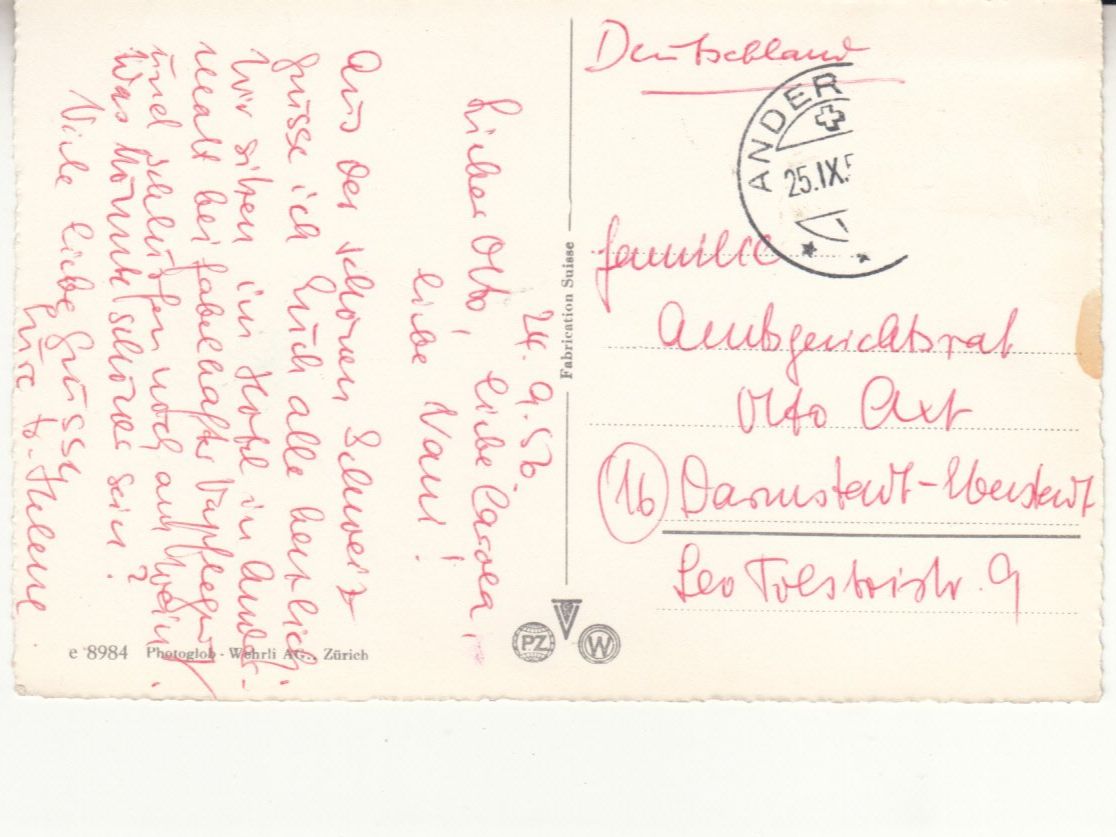 24. 9.
Lieber Otto, liebe Carola,
liebe
Aus der schönen Schweiz
grüsse ich Euch alle herzlich.
Wir sitzen im Hotel in Ander-
matt bei fabelhafter Verpflegung
und schlürfen noch Wein.
Was könnte schöner sein?
Viele liebe Grüsse
Eure Helene
e 8984 Photoglob-Wehrli AG., Zürich
Fabrication Suisse
PZ W
Deutschland
ANDER
25.IX.5
Familie
Amtsgerichtsrat
Otto Axt
(16) Darmstadt-Eberstadt
Leo Tolstoistr. 9